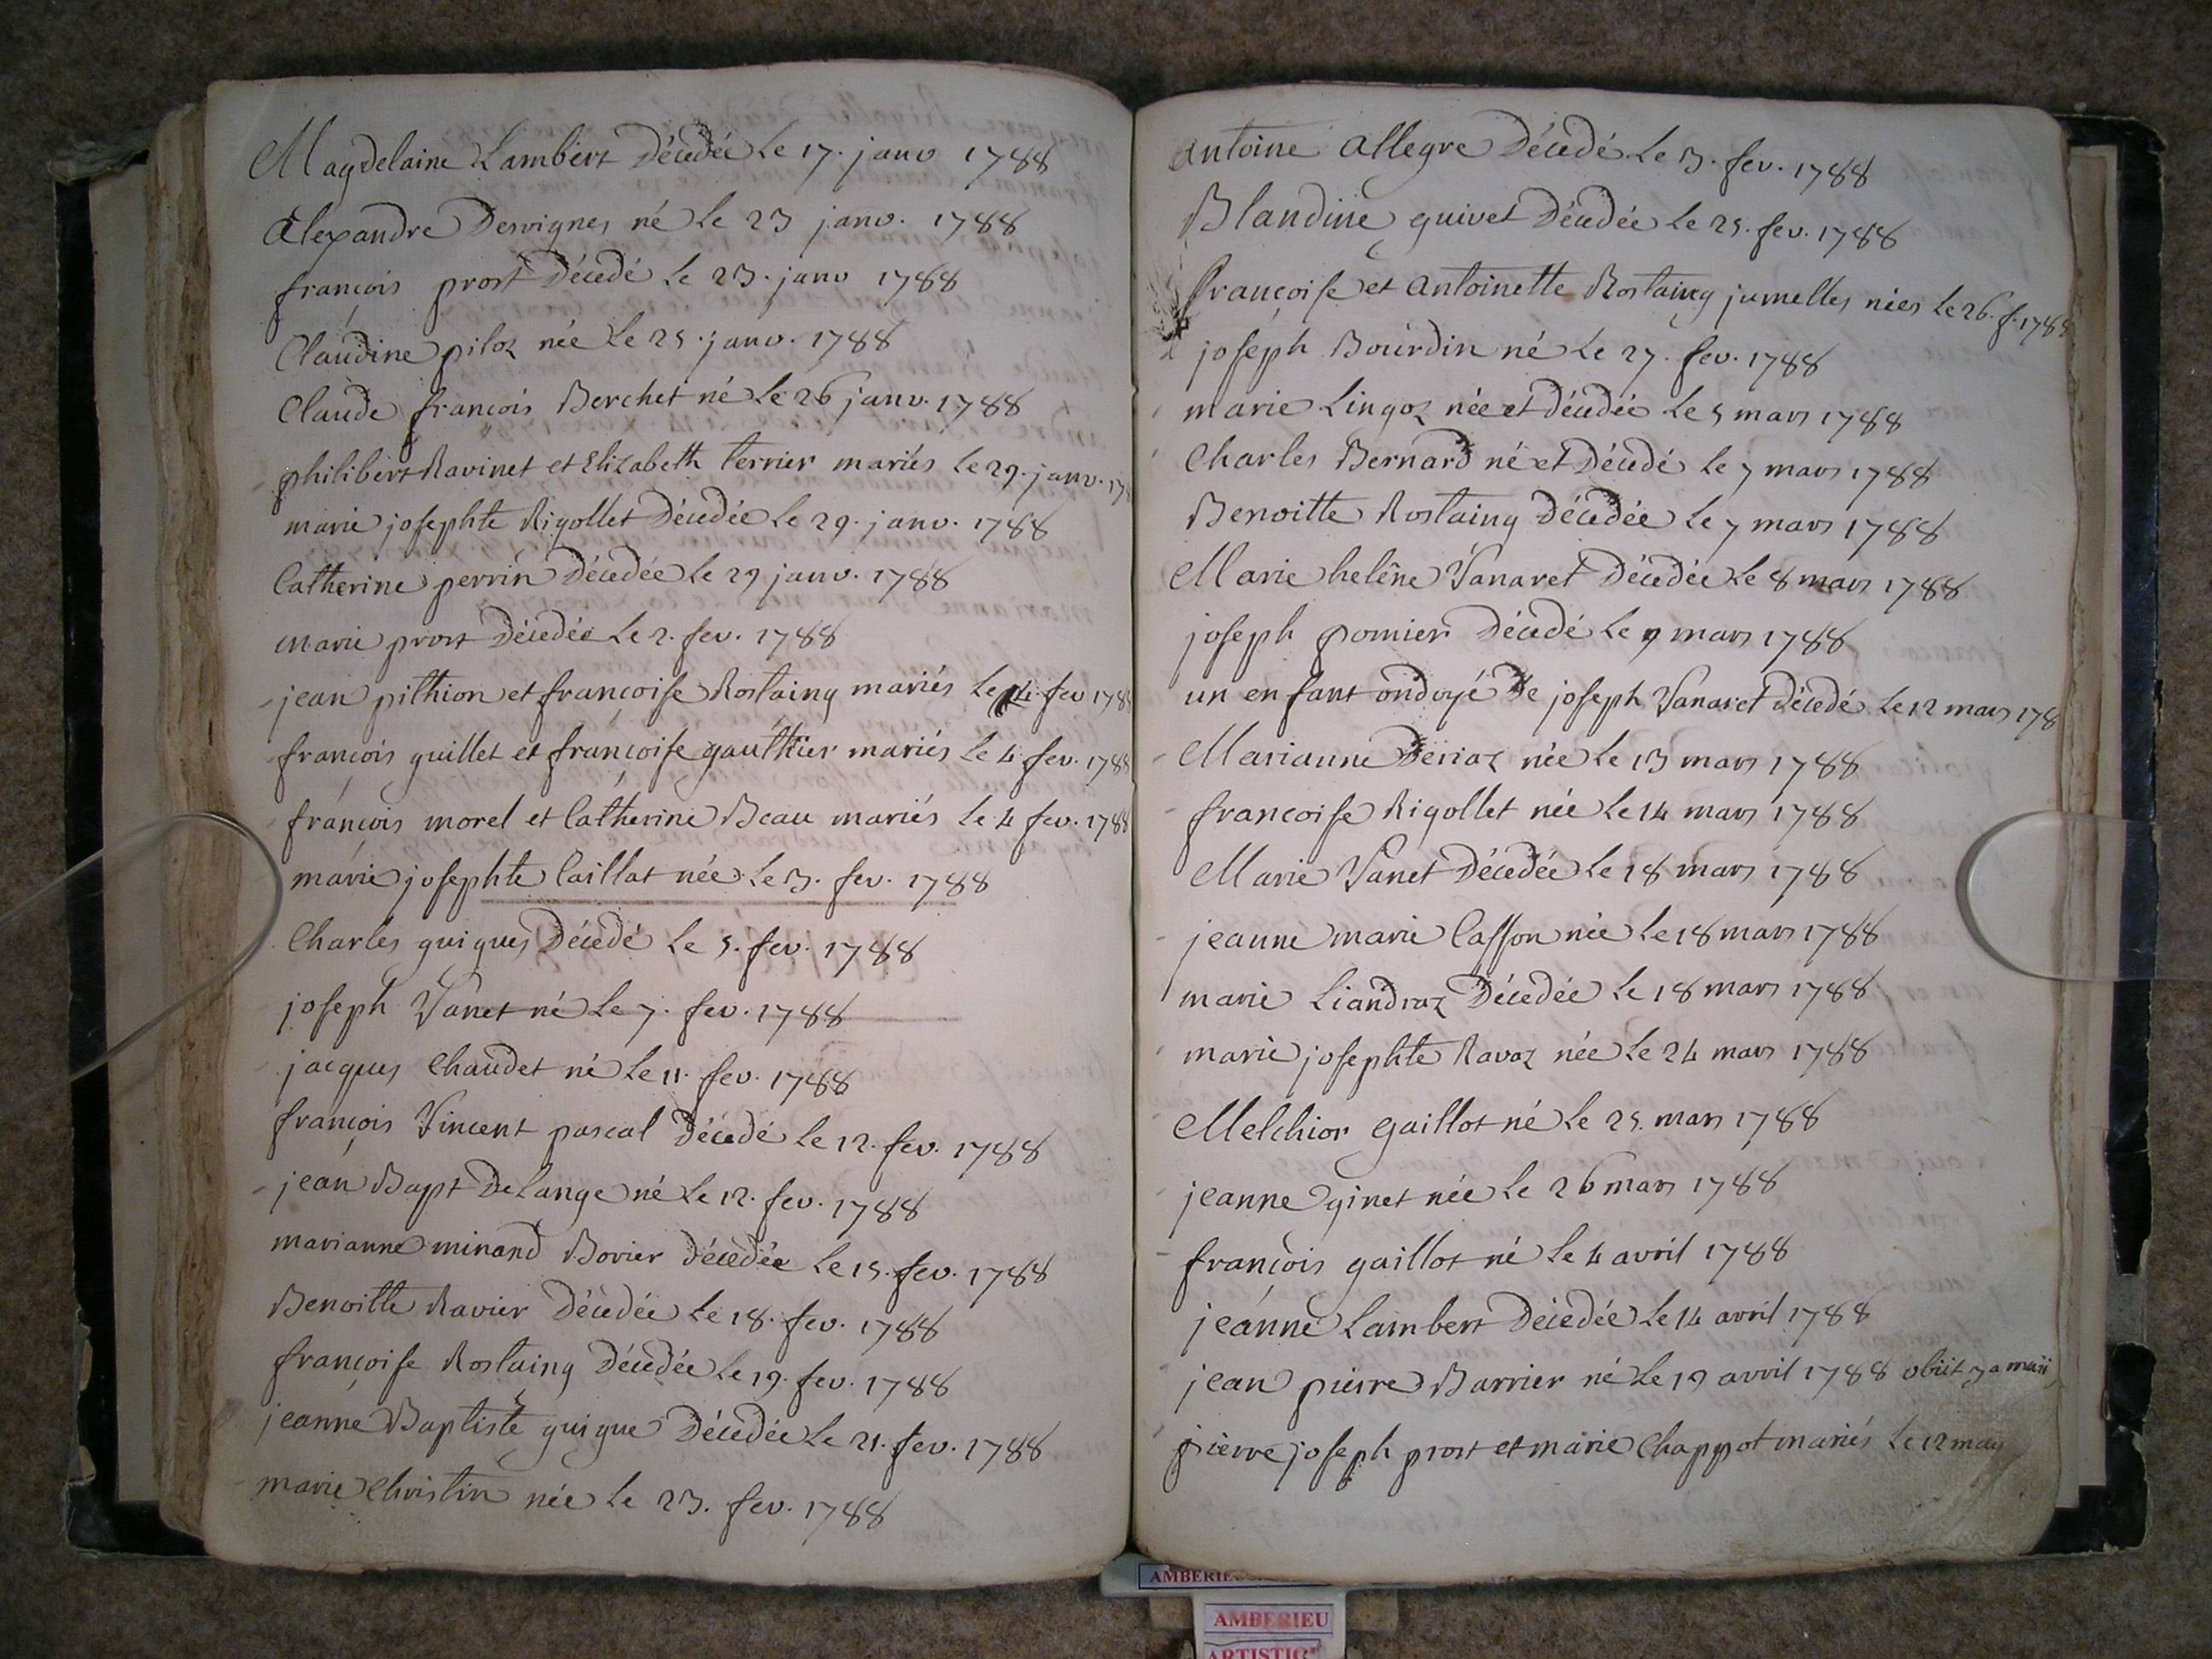 Magdelaine Lambert Décédée Le 17. janv 1788
Alexandre Desvignes né Le 23 janv. 1788
françois prost Décédé Le 23. janv 1788
Claudine piloz née Le 25. janv. 1788
Claude françois Berchet né Le 26 janv. 1788
philibert Ravinet et Elizabeth terrier mariés Le 29. janv. 17
marie josephte Rigollet Décédée Le 29. janv. 1788
Catherine perrin Décédée Le 29 janv. 1788
marie prost Décédée Le 2. fev. 1788
jean pithion et françoise Rostaing mariés Le 4 fev 178
françois guillet et françoise gauthier mariés Le 4 fev. 1788
françois morel et Catherine Beau mariés Le 4 fev. 1788
marie josephte Caillat née Le 3. fev. 1788
Charles guigues Décédé Le 5. fev. 1788
joseph Vanet né Le 7. fev. 1788
jacques Chaudet né Le 11. fev. 1788
françois Vincent pascal Décédé Le 12. fev. 1788
jean Bapt DeLange né Le 12. fev. 1788
marianne minand Bovier décédée Le 15. fev. 1788
Benoitte Ravier Décédée Le 18. fev. 1788
françoise Rostaing Décédée Le 19. fev. 1788
jeanne Baptiste guigue Décédée Le 21. fev. 1788
marie Christin née Le 23. fev. 1788
Antoine Allegre Décédé Le 3. fev. 1788
Blandine guivet Décédée Le 25. fev. 1788
françoise et Antoinette Rostaing jumelles nées Le 26. f. 1788
joseph Bourdin né Le 27. fev. 1788
marie Lingoz née et décédée Le 5 mars 1788
Charles Bernard né et Décédé Le 7 mars 1788
Benoitte Rostaing Décédée Le 7 mars 1788
Marie helène Vanaret Décédée Le 8 mars 1788
joseph pomier Décédé Le 9 mars 1788
un enfant ondoyé De joseph Vanaret Décédé Le 12 mars 178
Marianne Derraz née Le 13 mars 1788
françoise Rigollet née Le 14 mars 1788
Marie Vanet Décédée Le 18 mars 1788
jeanne marie Casson née Le 18 mars 1788
marie Liandraz Décédée Le 18 mars 1788
marie josephte Ravoz née Le 24 mars 1788
Melchior gaillot né Le 25. mars 1788
jeanne ginet née Le 26 mars 1788
françois gaillot né Le 4 avril 1788
jeanne Lambert Décédée Le 14 avril 1788
jean pierre Barrier né Le 19 avril 1788 obiit 7a maii
pierre joseph prost et marie Chappot mariés Le 12 may
AMBERIEU
ARTISTIQ